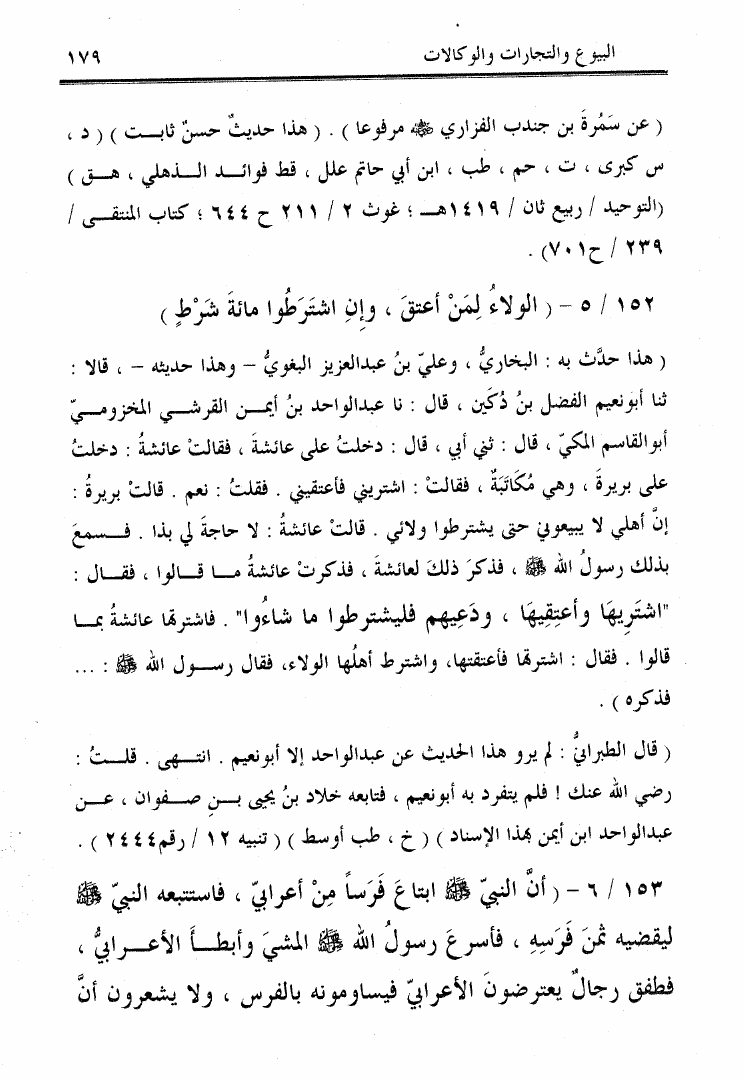 البيوع والتجارات والوكالات ١٧٩
( عن سَمُرةَ بن جندب الفزاري ﷺ مرفوعا ) . ( هذا حديثٌ حسنٌ ثابـت ) ( د ،
س كبرى ، ت ، حم ، طب ، ابن أبي حاتم علل ، قط فوائـد الـذهلي ، هـق )
(التوحيد / ربيع ثان / ١٤١٩هـ ؛ غوث ٢ / ٢١١ ح ٦٤٤ ؛ كتاب المنتقـى /
٢٣٩ / ح٧٠١) .
١٥٢ / ٥ - ( الولاءُ لِمَنْ أعتقَ ، وإنِ اشتَرَطُوا مائةَ شَرْطٍ )
( هذا حدَّث به : البخاريُّ ، وعليّ بنُ عبدالعزيز البغويُّ – وهذا حديثه – ، قالا :
ثنا أبونعيم الفضل بنُ دُكَين ، قال : نا عبدالواحد بنُ أيمـن القرشـي المخزومـيّ
أبوالقاسم المكيّ ، قال : ثني أبي ، قال : دخلتُ على عائشةَ ، فقالتْ عائشةُ : دخلتْ
على بريرةَ ، وهي مُكَاتَبَةٌ ، فقالتْ : اشتريني فأعتقيني . فقلتُ : نعم . قالتْ بريرةُ :
إنَّ أهلي لا يبيعوني حتى يشترطوا ولائي . قالتْ عائشةُ : لا حاجةَ لي بذا . فـسمعَ
بذلك رسولُ الله ﷺ ، فذكرَ ذلكَ لعائشةَ ، فذكرتْ عائشةُ مـا قـالوا ، فقـال :
"اشتَرِيهَا وأعتِقِيهَا ، ودَعِيهم فليشترطوا ما شاءُوا" . فاشترتها عائشةُ بمـا
قالوا . فقال : اشترتها فأعتقتها، واشترط أهلُها الولاء، فقال رسـول الله ﷺ : ...
فذكره ) .
( قال الطبرانيُّ : لم يرو هذا الحديث عن عبدالواحد إلا أبونعيم . انتـهى . قلـتُ :
رضي الله عنك ! فلم يتفرد به أبونعيم ، فتابعه خلاد بنُ يحيى بـنِ صـفوان ، عـن
عبدالواحد ابن أيمن بهذا الإسناد ) ( خ ، طب أوسط ) ( تنبيه ١٢ / رقم٢٤٤٤ ) .
١٥٣ / ٦ - ( أنَّ النبيّ ﷺ ابتاعَ فَرَساً مِنْ أعرابيّ ، فاستتبعه النبيّ ﷺ
ليقضيه ثمنَ فَرَسِهِ ، فأسرعَ رسولُ الله ﷺ المشيَ وأبطـأَ الأعـرابيُّ ،
فطفق رجالٌ يعترضونَ الأعرابيّ فيساومونه بالفرس ، ولا يشعرون أنَّ